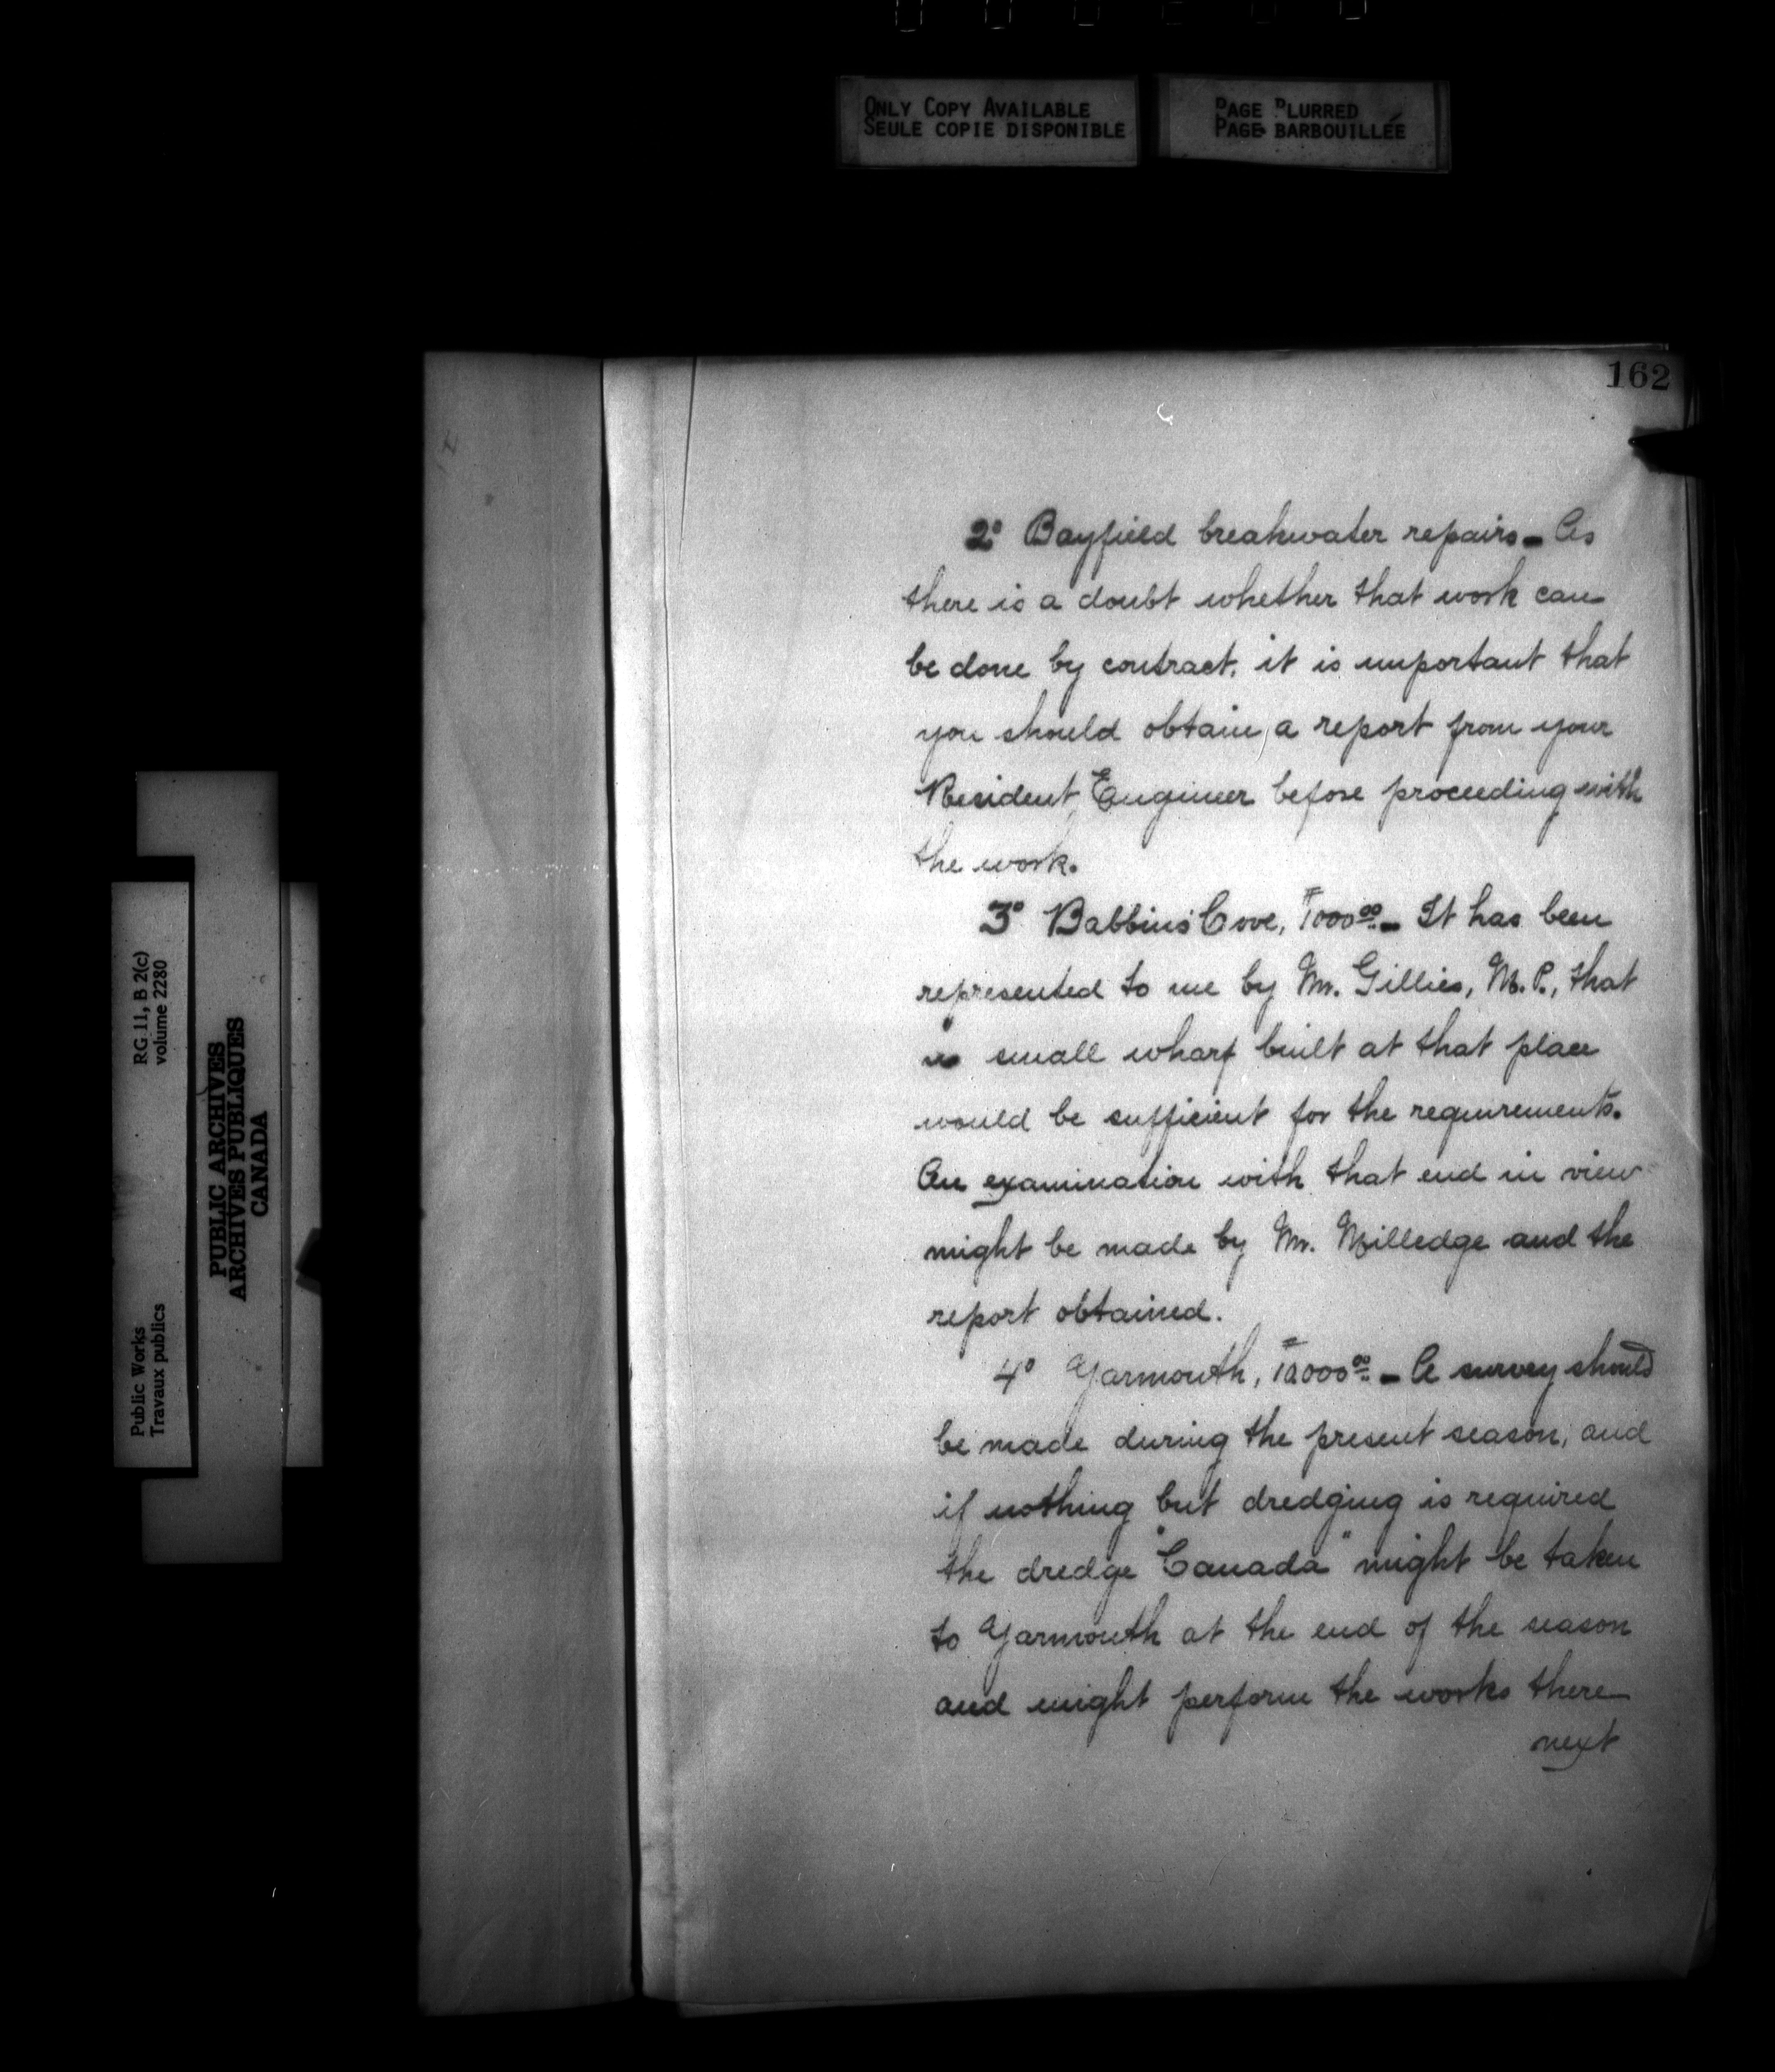 ONLY COPY AVAILABLE
SEULE COPIE DISPONIBLE
PAGE BLURRED
PAGE BARBOUILLÉE
162
2° Bayfield breakwater repairs – As
there is a doubt whether that work can
be done by contract, it is important that
you should obtain a report from your
Resident Engineer before proceeding with
the work.
3° Babbins' Cove, $1000.00 – It has been
represented to me by Mr. Gillies, M.P., that
a small wharf built at that place
would be sufficient for the requirements.
An examination with that end in view
might be made by Mr. Milledge and the
report obtained.
4° Yarmouth, $10000.00 – A survey should
be made during the present season, and
if nothing but dredging is required
the dredge "Canada" might be taken
to Yarmouth at the end of the season
and might perform the works there
next
RG 11, B 2(c)
volume 2280
Public Works
Travaux publics
PUBLIC ARCHIVES
ARCHIVES PUBLIQUES
CANADA